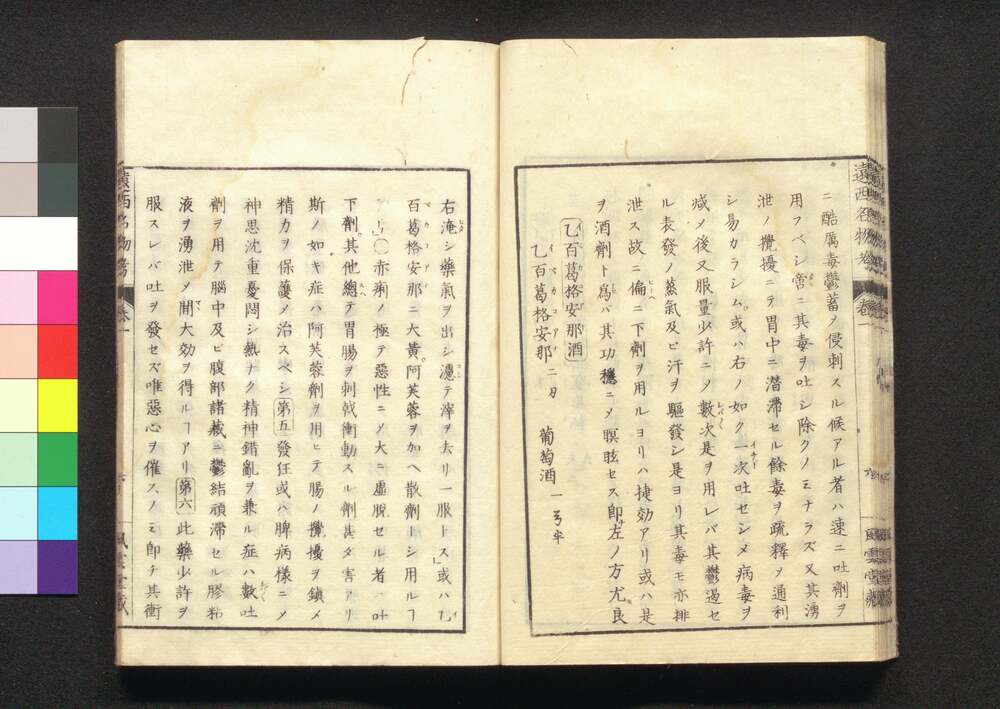 遠西名物考 卷一
二酷厲毒鬱蓄ノ侵刺スル候アル者ハ速ニ吐劑ヲ
用フベシ啻ニ其毒ヲ吐シ除クノミナラズ又其湧
泄ノ攪擾ニテ胃中ニ潜滞セル餘毒ヲ疏釋ノ通利
シ易カラシム。或ハ右ノ如ク一次吐セシメ病毒ヲ
減メ後又服量少許ニメ數次是ヲ用レバ其鬱遏セ
ル表發ノ蒸氣及ビ汗ヲ驅發シ是ヨリ其毒モ亦排
泄ス故ニ偏ニ下劑ヲ用ルヨリハ捷効アリ或ハ是
ヲ酒劑ト爲バ其功穩ニメ瞑眩セス即左ノ方尤良
乙百葛格安那酒
乙百葛格安那 二匁 葡萄酒 一弓半
右淹シ藥氣ヲ出シ漉テ滓ヲ去リ一服トス」或ハ乙
百葛格安那ニ大黄。阿芙蓉ヲ加ヘ散劑トシ用ルヿ
○赤痢ノ極テ惡性ニメ大ニ虛脫セル者ハ吐
下劑。其他總テ胃腸ヲ刺戟衝動スル劑甚ダ害アリ
斯ノ如キ症ハ阿芙蓉劑ヲ用ヒテ腸ノ攪擾ヲ鎮メ
精力ヲ保護メ治スベシ 第五 發狂或ハ脾病様ニメ
神思沈重憂悶シ熱ナク精神錯亂ヲ兼ル症ハ數吐
劑ヲ用テ腦中及ビ腹部諸藏ニ鬱結頑滞セル膠粘
液ヲ湧泄メ間大効ヲ得ルヿアリ 第六 此藥少許ヲ
服スレバ吐ヲ發セズ唯惡心ヲ催スノミ即チ其衝